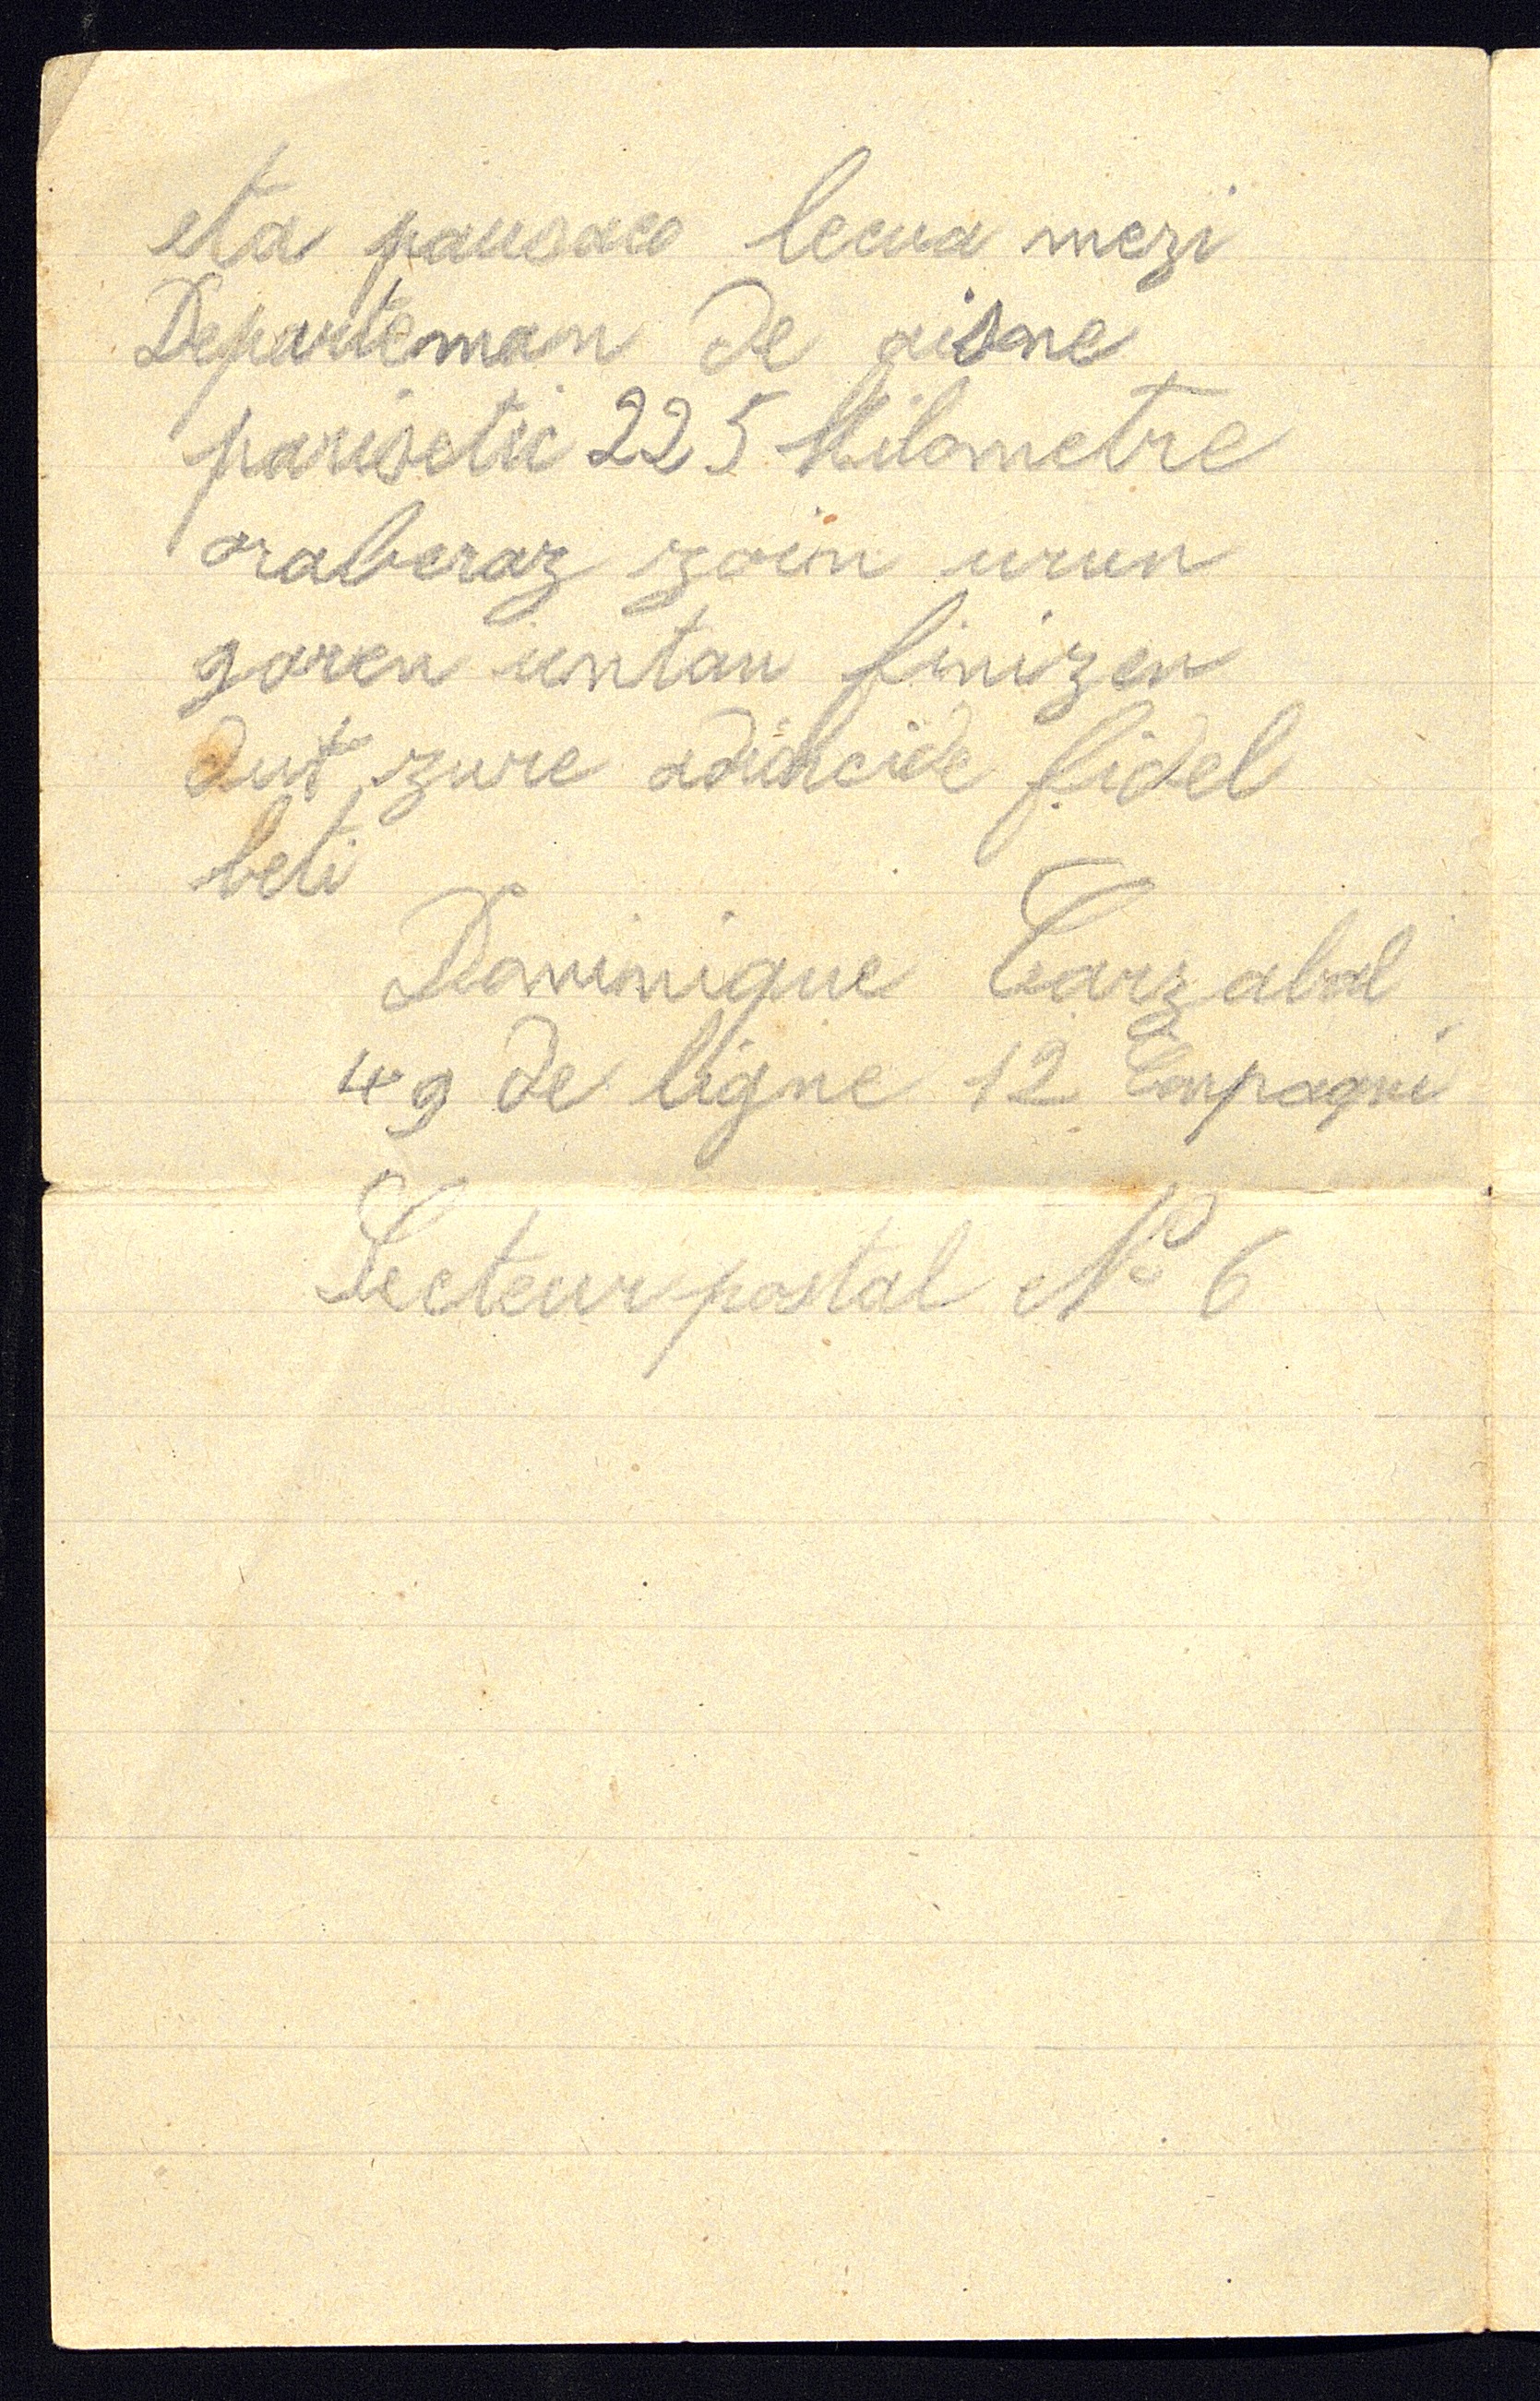 eta pausaco lecua mezi
Departeman de aisne
parisetic 225 Kilometre
oraberaz zoin urun
garen untan finizen
dut zure adichcide fidel
beti
Dominique Carzabal
49 de ligne 12 Conpagni
Secteur postal No 6